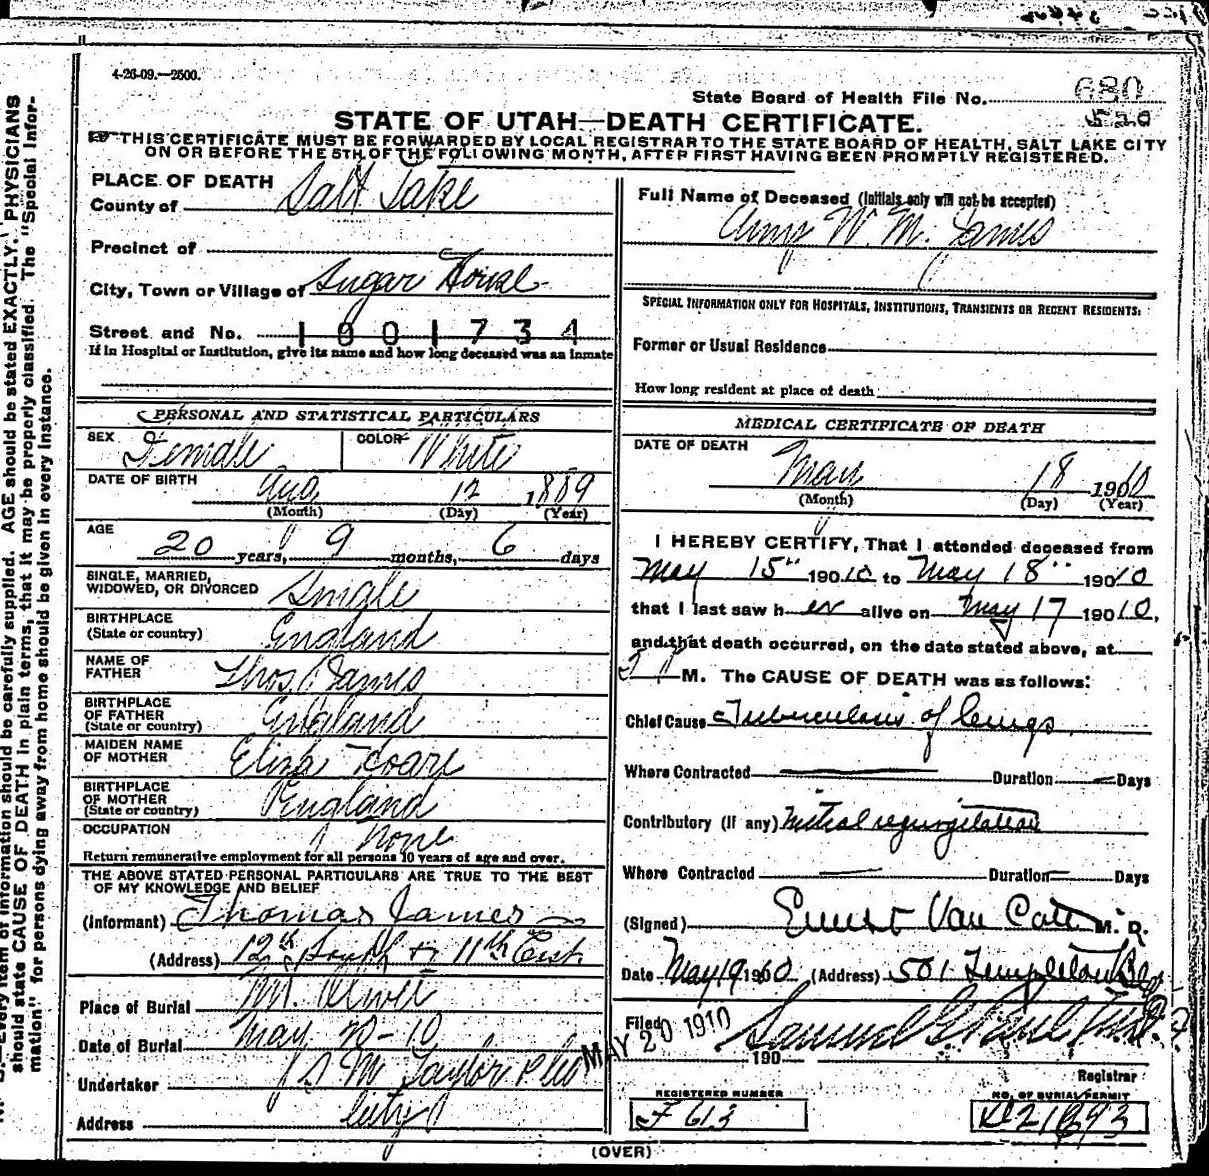 4-26-09.—2500.
State Board of Health File No. 680
520
STATE OF UTAH—DEATH CERTIFICATE.
THIS CERTIFICATE MUST BE FORWARDED BY LOCAL REGISTRAR TO THE STATE BOARD OF HEALTH, SALT LAKE CITY
ON OR BEFORE THE 5TH OF THE FOLLOWING MONTH, AFTER FIRST HAVING BEEN PROMPTLY REGISTERED.
PLACE OF DEATH
County of Salt Lake
Precinct of
City, Town or Village of Sugar House
Street and No. 1001734
If in Hospital or Institution, give its name and how long deceased was an inmate
PERSONAL AND STATISTICAL PARTICULARS
SEX Female COLOR White
DATE OF BIRTH Aug 12 1889
(Month) (Day) (Year)
AGE 20 years, 9 months, 6 days
SINGLE, MARRIED,
WIDOWED, OR DIVORCED Single
BIRTHPLACE
(State or country) England
NAME OF
FATHER Thos. James
BIRTHPLACE
OF FATHER
(State or country) England
MAIDEN NAME
OF MOTHER Eliza Hoare
BIRTHPLACE
OF MOTHER
(State or country) England
OCCUPATION None
Return remunerative employment for all persons 10 years of age and over.
THE ABOVE STATED PERSONAL PARTICULARS ARE TRUE TO THE BEST
OF MY KNOWLEDGE AND BELIEF
(Informant) Thomas James
(Address) 12th South & 11th East
Place of Burial Mt. Olivet
Date of Burial May 20-10
Undertaker S M Taylor & Co
Address City
Full Name of Deceased (Initials only will not be accepted)
Amy W. M. James
SPECIAL INFORMATION ONLY FOR HOSPITALS, INSTITUTIONS, TRANSIENTS OR RECENT RESIDENTS:
Former or Usual Residence
How long resident at place of death
MEDICAL CERTIFICATE OF DEATH
DATE OF DEATH
May 18 1910
(Month) (Day) (Year)
I HEREBY CERTIFY, That I attended deceased from
May 15" 190 10 to May 18" 190 10
that I last saw h er alive on May 17 190 10,
and that death occurred, on the date stated above, at
M. The CAUSE OF DEATH was as follows:
Chief Cause Tuberculosis of lungs.
Where Contracted Duration Days
Contributory (if any) Mitral regurgitation
Where Contracted Duration Days
(Signed) Ernest Van Cott M. D.
Date May 19 1910 (Address) 501 Templeton Bldg
Filed MAY 20 1910 190 Samuel G. Paul
Registrar
REGISTERED NUMBER
F 613
NO. OF BURIAL PERMIT
(OVER)
should state CAUSE OF DEATH in plain terms, that it may be properly classified. The "Special Infor-
mation" for persons dying away from home should be given in every instance.
Every item of information should be carefully supplied. AGE should be stated EXACTLY. PHYSICIANS